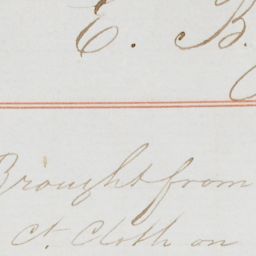 E. B.
Brought from
ct. Cloth on